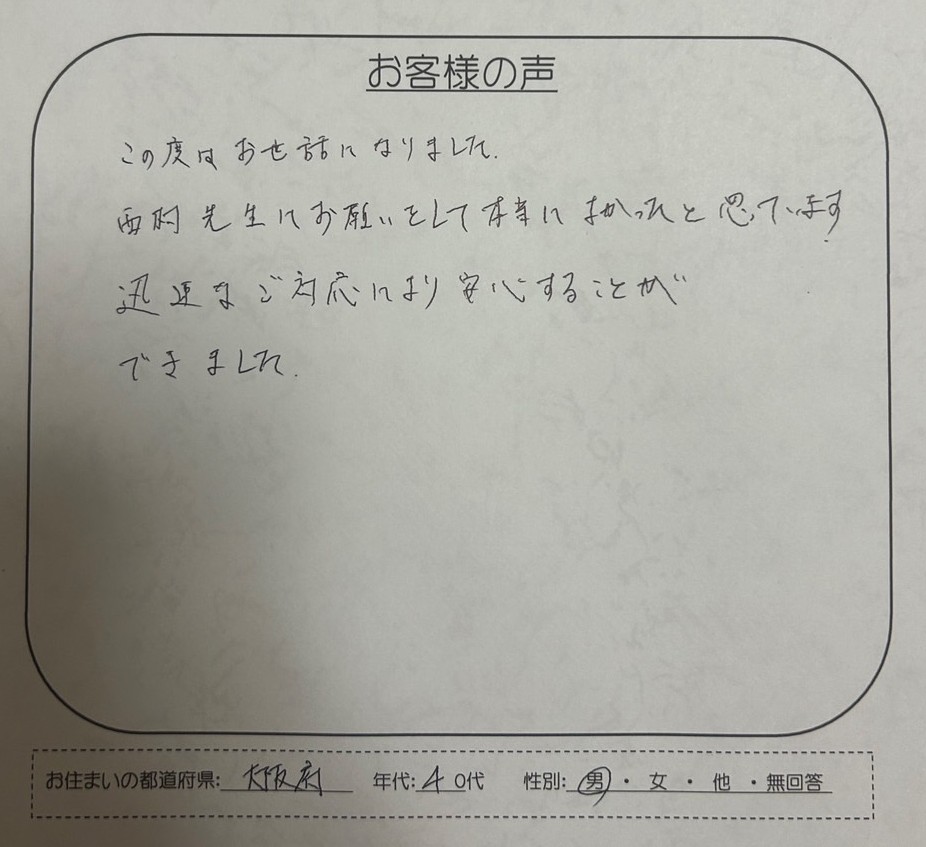 お客様の声
この度はお世話になりました.
西村先生にお願いをして本当によかったと思っています.
迅速なご対応により安心することが
できました.
お住まいの都道府県: 大阪府 年代: 40代 性別: 男・女・他・無回答